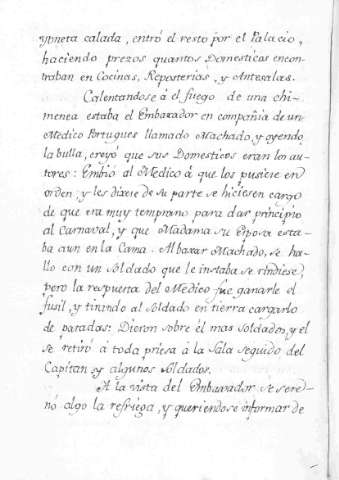 yoneta calada, entró el resto por el Palacio,
haciendo prezos quantos Domesticos encon-
traban en Cocinas, Reposterias, y Antesalas.
Calentandose á el fuego de una chi-
menea estaba el Embaxador en compañia de un
Medico Portugues llamado Machado, y oyendo
la bulla, creyó que sus Domesticos eran los au-
tores: Embió al Medico á que los pusiere en
orden; y les dixere de su parte se hiciesen cargo
de que era muy temprano para dar principio
al Carnaval, y que Madama su Esposa esta-
ba aun en la Cama. Al baxar Machado, se ha-
lló con un Soldado que le instaba se rindiese,
pero la respuesta del Medico fue ganarle el
fusil, y tirando al Soldado en tierra cargarlo
de patadas: Dieron sobre él mas Soldados, y el
se retiró á toda priesa á la Sala seguido del
Capitan y algunos Soldados.
A la vista del Embaxador se sere-
nó algo la refriega, y queriendose informar de